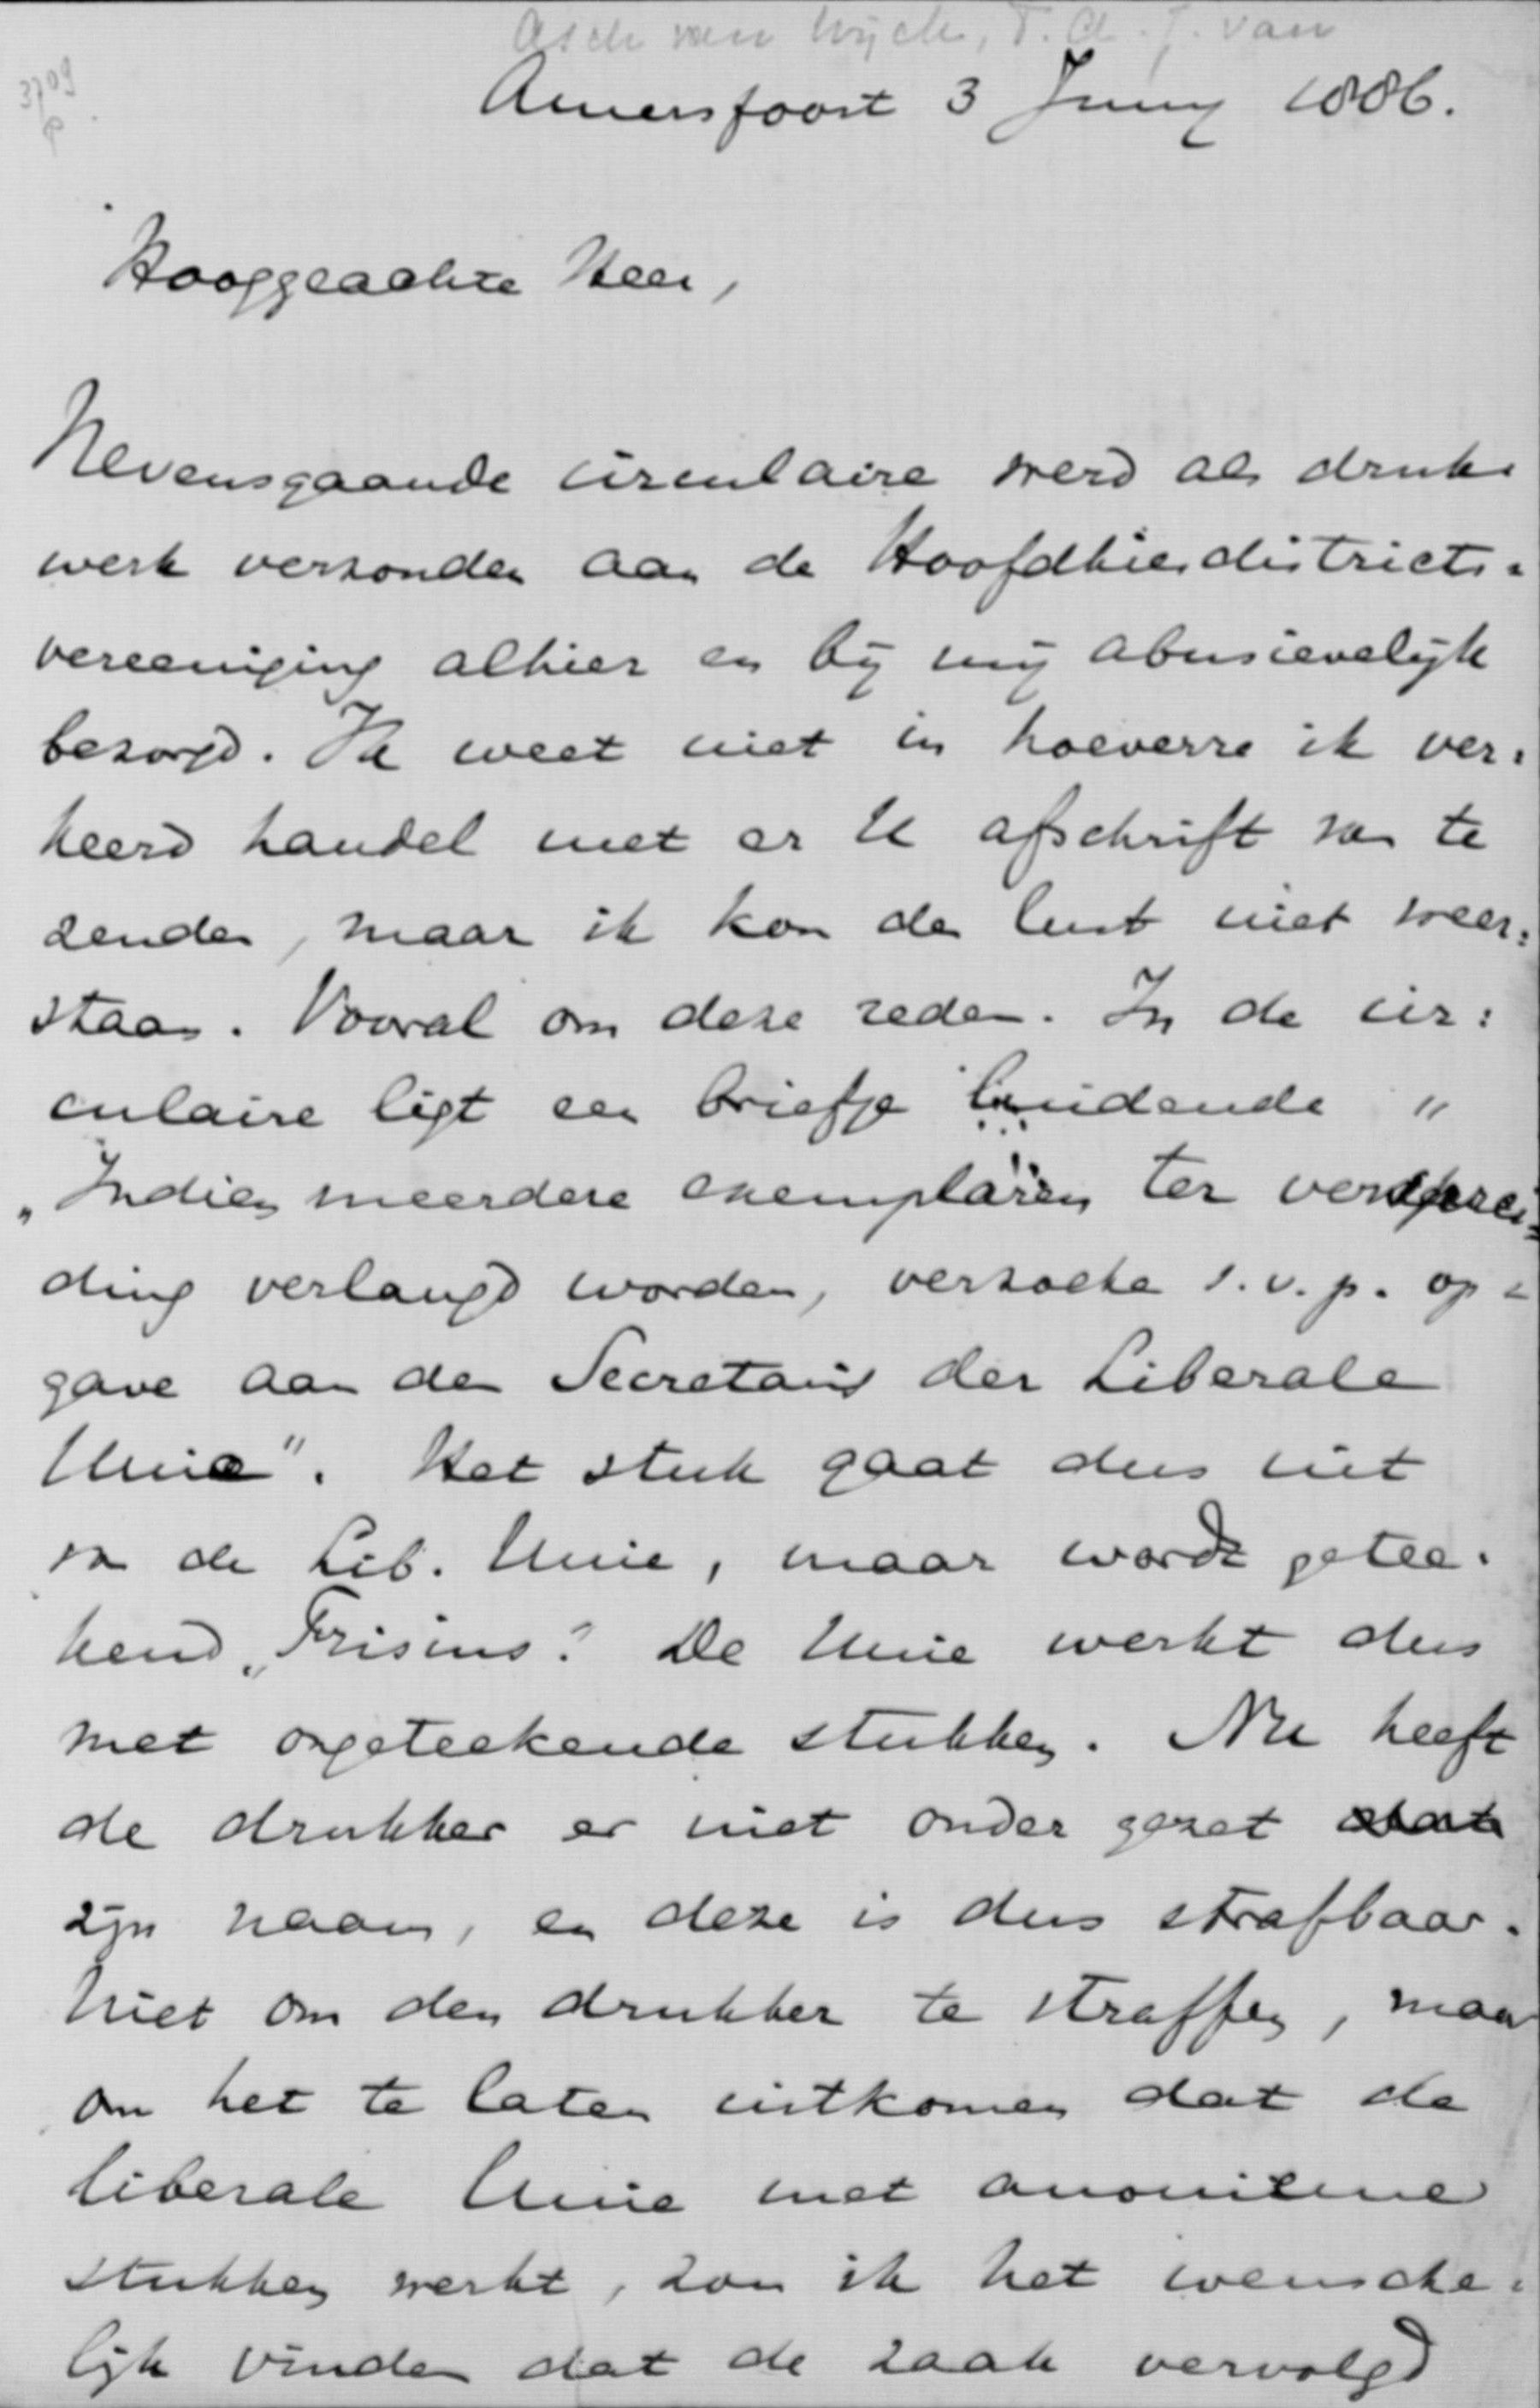 Asch van Wijck, T. A. J. van
3709
Amersfoort 3 Juny 1886.
Hooggeachte Heer,
Nevensgaande circulaire werd als druk-
werk verzonden aan de Hoofdkiesdistricts-
vereeniging alhier en bij mij abusievelijk
bezorgd. Ik weet niet in hoeverre ik ver-
keerd handel met er U afschrift van te
zenden, maar ik kon de lust niet weer-
staan. Vooral om deze reden. In de cir-
culaire ligt een briefje luidende "
"Indien meerdere exemplaren ter versprei-
ding verlangd worden, verzoeke s.v.p. op-
gave aan den Secretaris der Liberale
Unie". Het stuk gaat dus uit
van de Lib. Unie, maar wordt getee-
kend "Frisius". De Unie werkt dus
met ongeteekende stukken. Nu heeft
de drukker er niet onder gezet
zijn naam, en deze is dus strafbaar.
Niet om den drukker te straffen, maar
om het te laten uitkomen dat de
liberale Unie met anonieme
stukken werkt, zou ik het wensche-
lijk vinden dat de zaak vervolgd